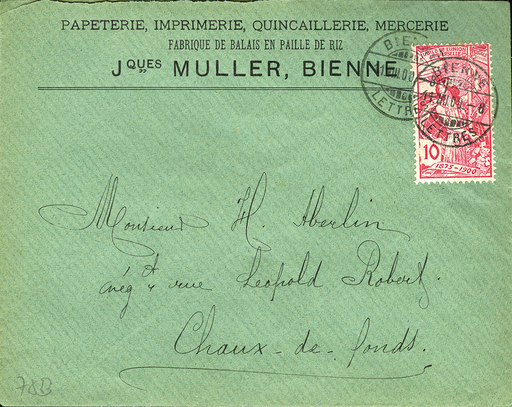 PAPETERIE, IMPRIMERIE, QUINCAILLERIE, MERCERIE
FABRIQUE DE BALAIS EN PAILLE DE RIZ
JQUES MULLER, BIENNE
BIENNE
LETTRES
BIENNE
LETTRES
10
1875-1900
Monsieur H. Aberlin
nég't rue Leopold Robert.
Chaux-de-fonds.
78B